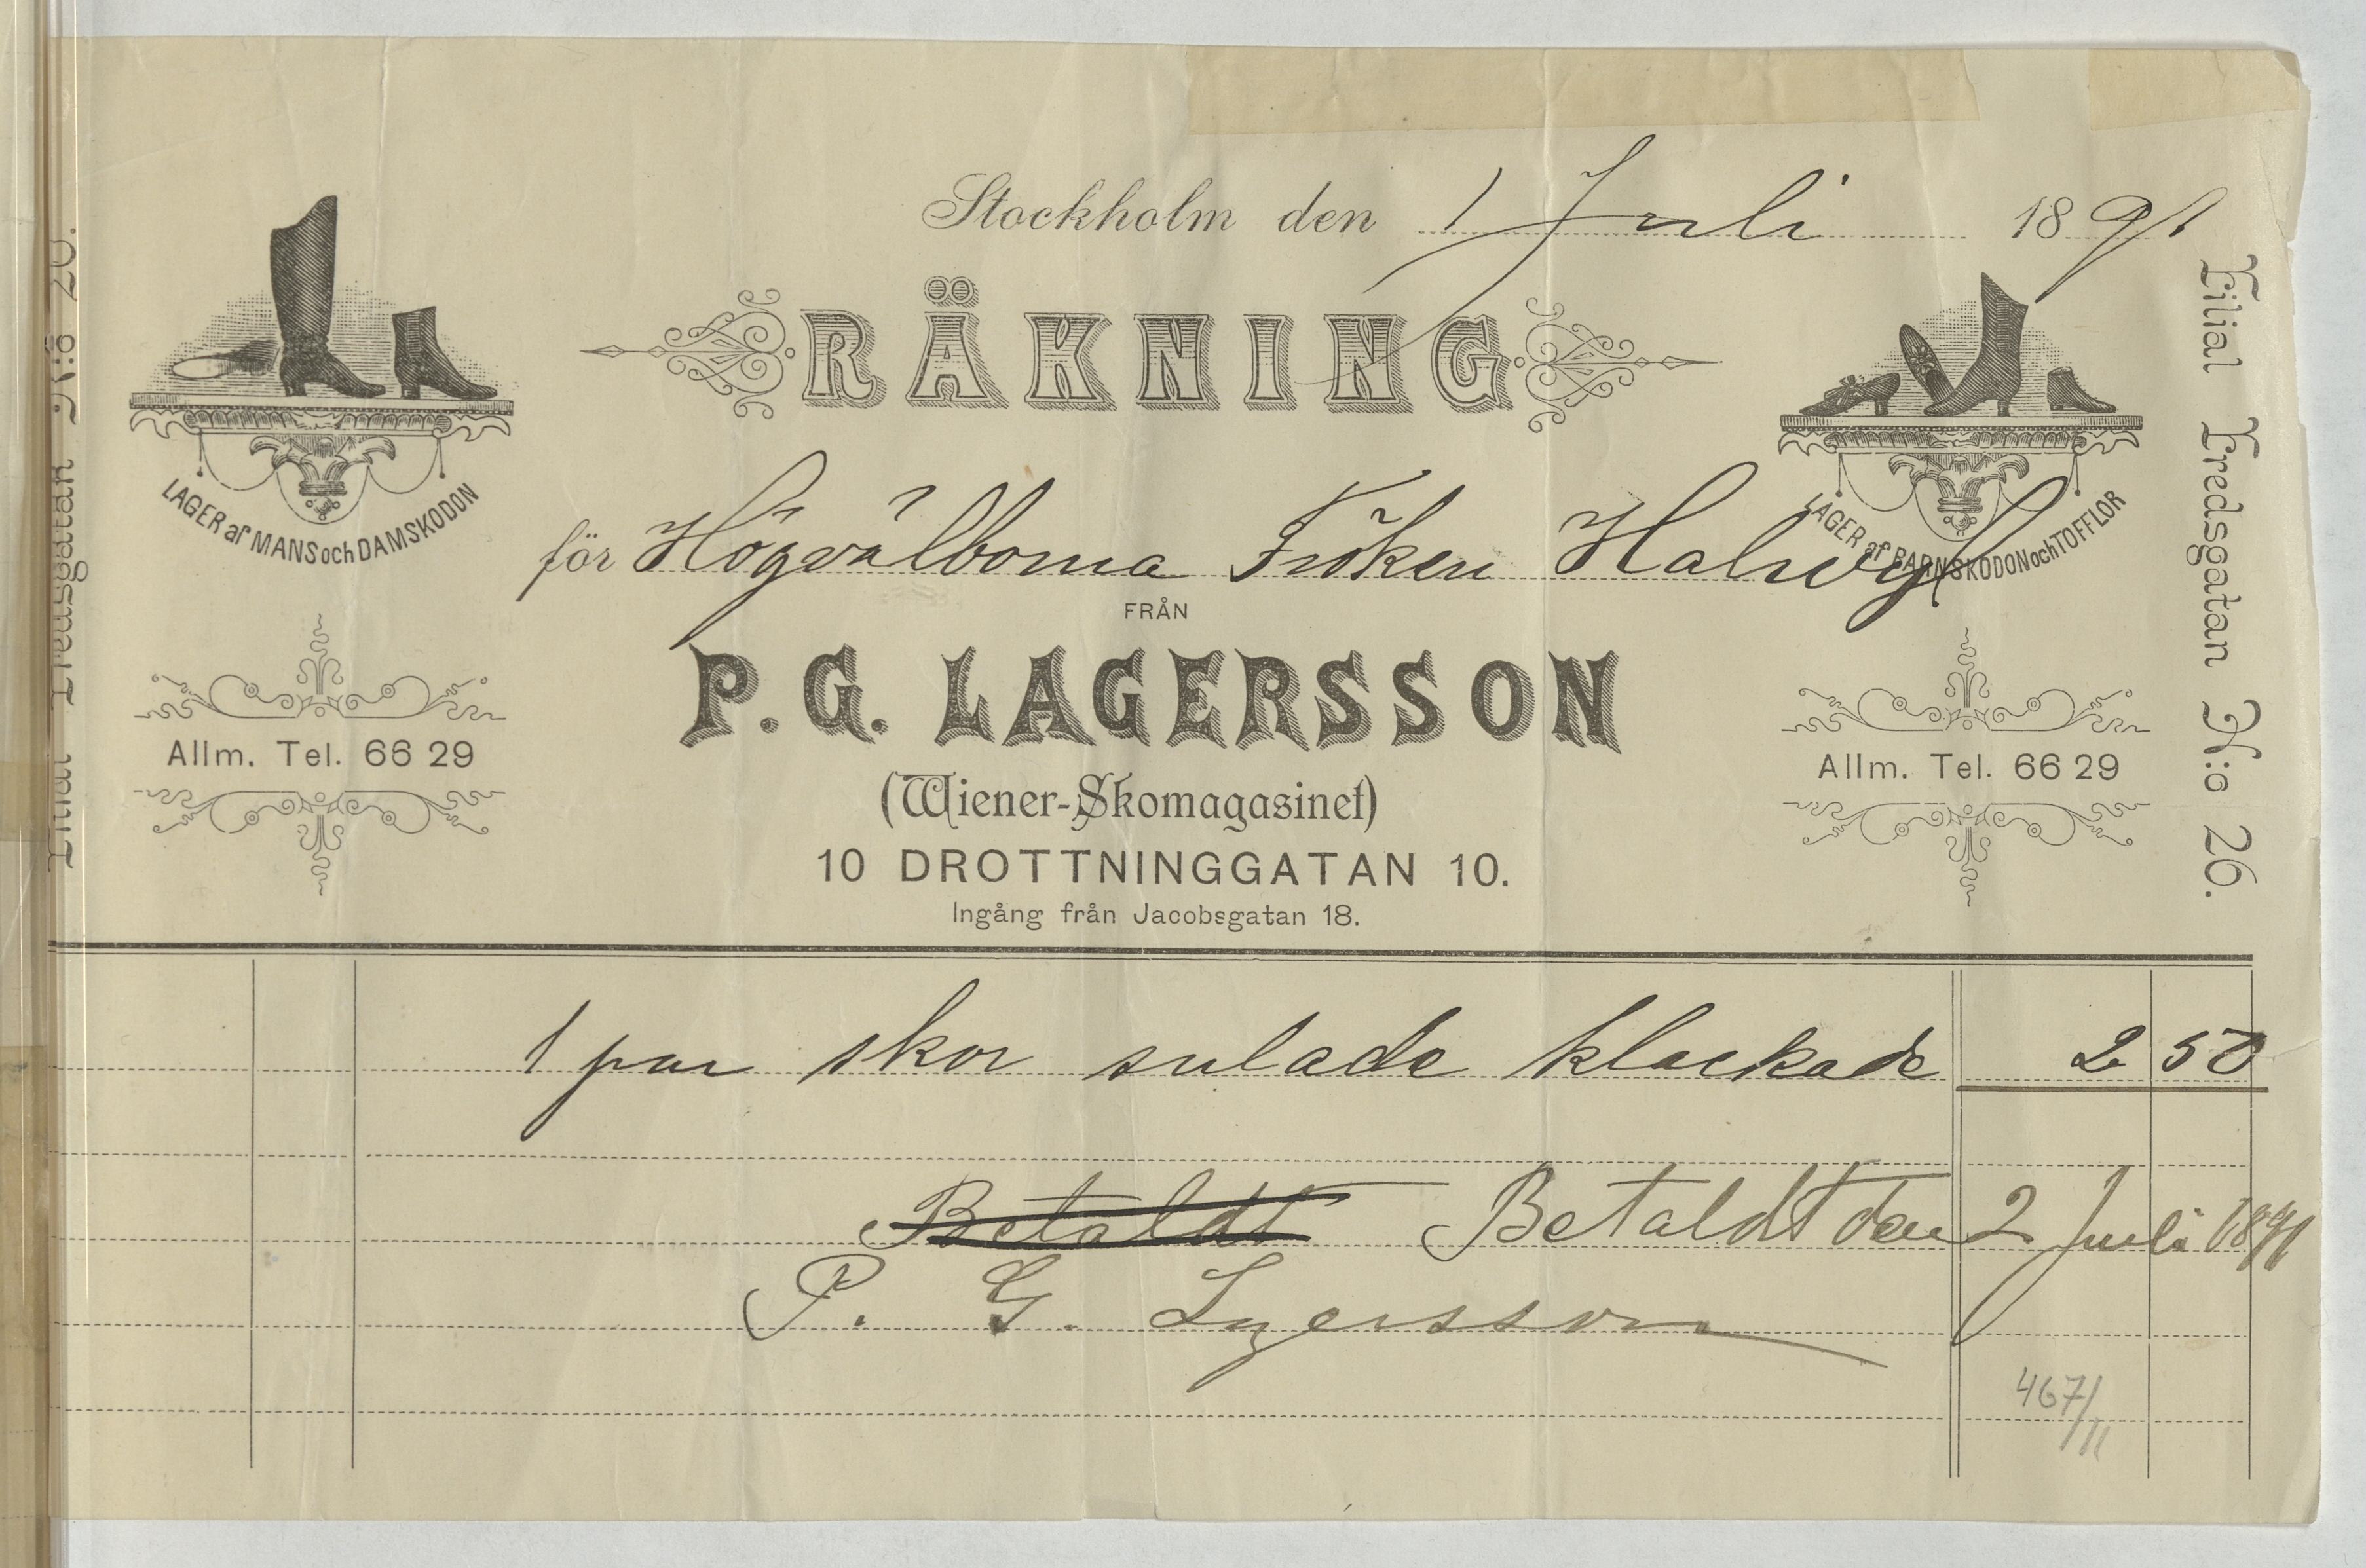 Stockholm den 1 Juli 1891
RÄKNING
LAGER af MANS och DAMSKODON
LAGER af BARNSKODON och TOFFLOR
för Högvälborna Fröken Halwyl
FRÅN
P. G. LAGERSSON
(Wiener-Skomagasinet)
10 DROTTNINGGATAN 10.
Ingång från Jacobsgatan 18.
Allm. Tel. 66 29
Allm. Tel. 66 29
Filial Fredsgatan N:o 26.
Filial Fredsgatan N:o 26.
1 par skor sulade klackade 2 50
Betaldt Betaldt den 2 Juli 1891
P. G. Lagersson
467/11